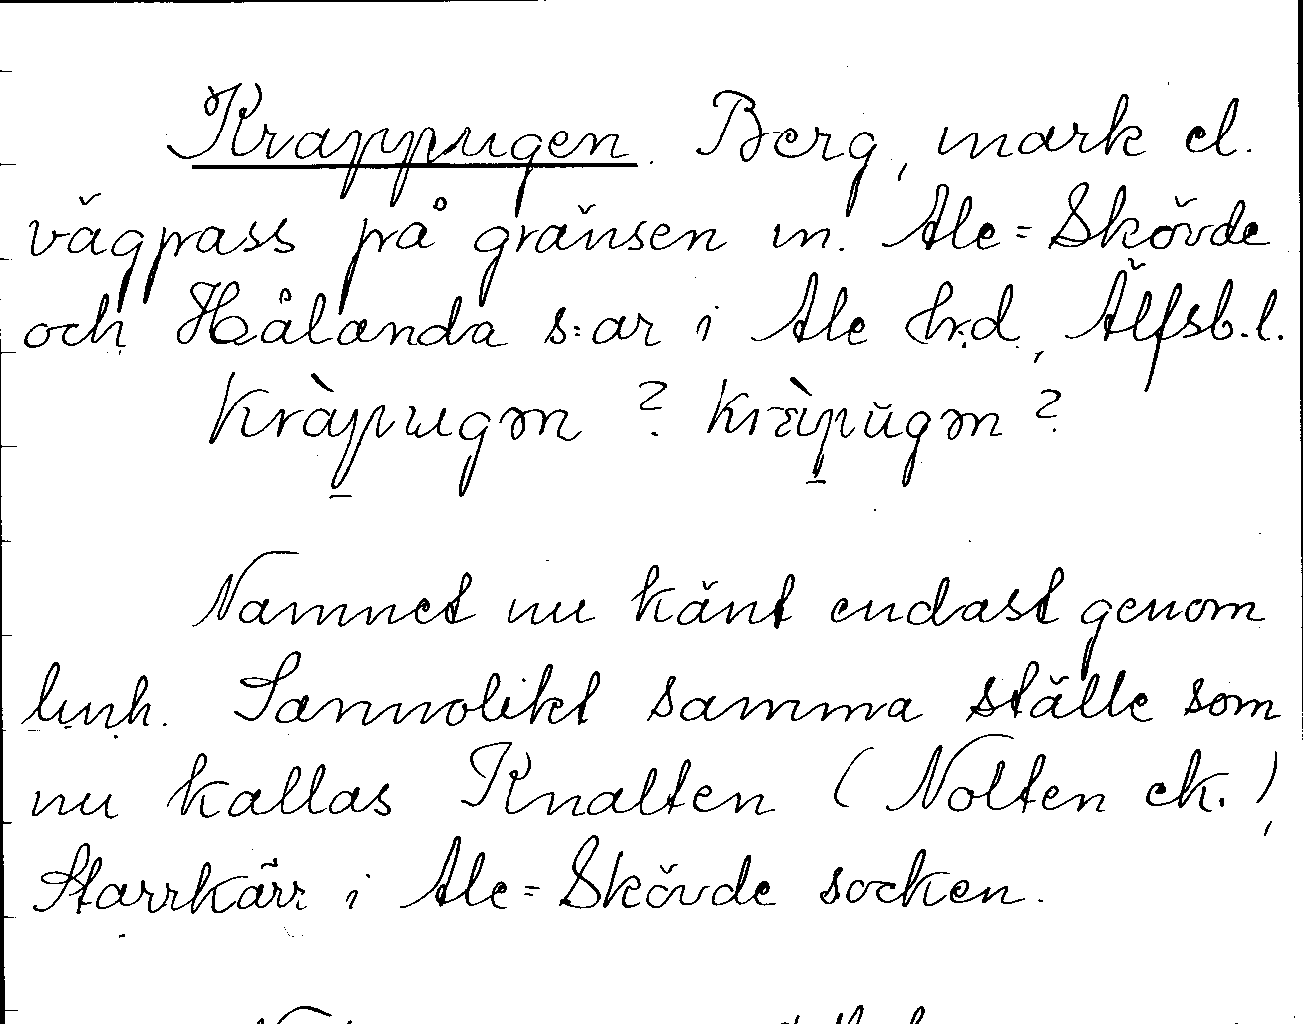 Krappugen. Berg, mark el.
vägpass på gränsen m. Ale=Skövde
och Hålanda s:ar i Ale hrd, Älfsb. l.
Kràpugən ? kràpŭgən ?
Namnet nu känt endast genom
Sannolikt samma ställe som
nu kallas Knalten (Nolten ek.),
Starrkärr i Ale=Skövde socken.